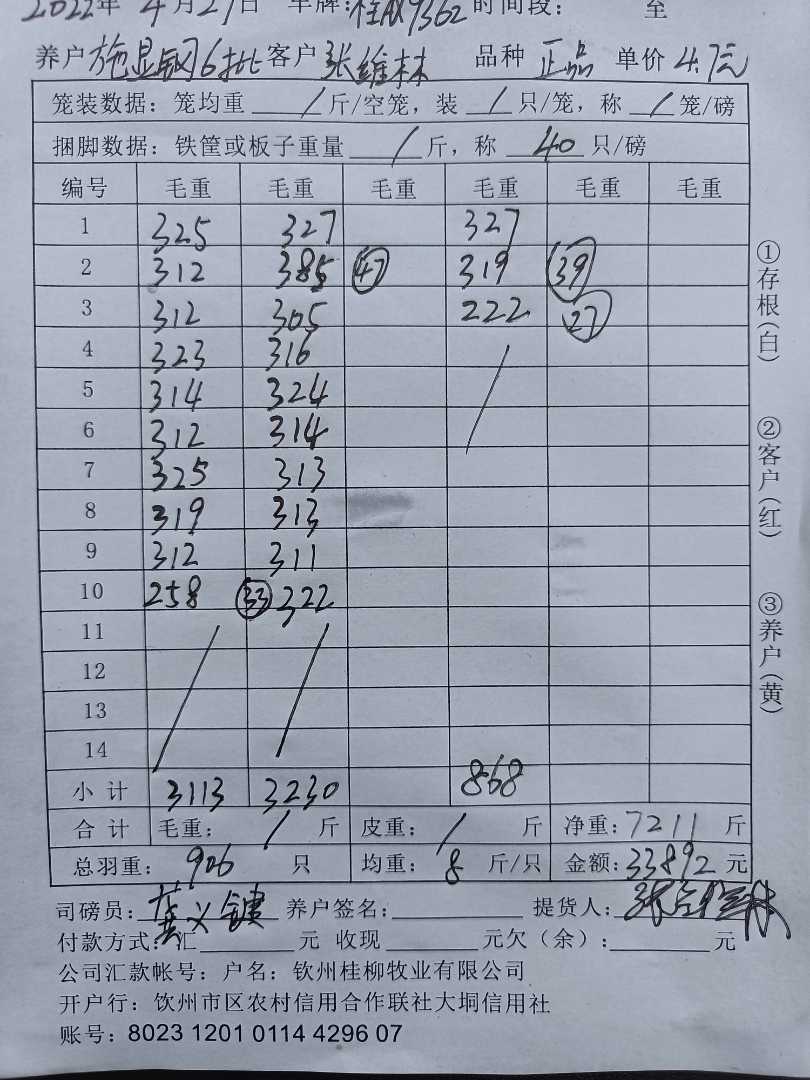 2022年 4月27日 车牌: 时间段: 至
养户 施显钢6批 客户 张维林 品种 正品 单价 4.7元
笼装数据: 笼均重 / 斤/空笼, 装 / 只/笼, 称 / 笼/磅
捆脚数据: 铁筐或板子重量 / 斤, 称 40 只/磅
编号 毛重 毛重 毛重 毛重 毛重 毛重
1 325 327 327
2 312 385 47 319 39
3 312 305 222 27
4 323 316
5 314 324
6 312 314
7 325 313
8 319 313
9 312 311
10 258 33 322
11
12
13
14
小计 3113 3230 868
合计 毛重: / 斤 皮重: / 斤 净重: 7211 斤
总羽重: 906 只 均重: 8 斤/只 金额: 33892 元
司磅员: 养户签名: 提货人: 张维林
付款方式: 汇 元 收现 元欠(余): 元
公司汇款帐号: 户名: 钦州桂柳牧业有限公司
开户行: 钦州市区农村信用合作联社大垌信用社
账号: 8023 1201 0114 4296 07
①存根(白)
②客户(红)
③养户(黄)